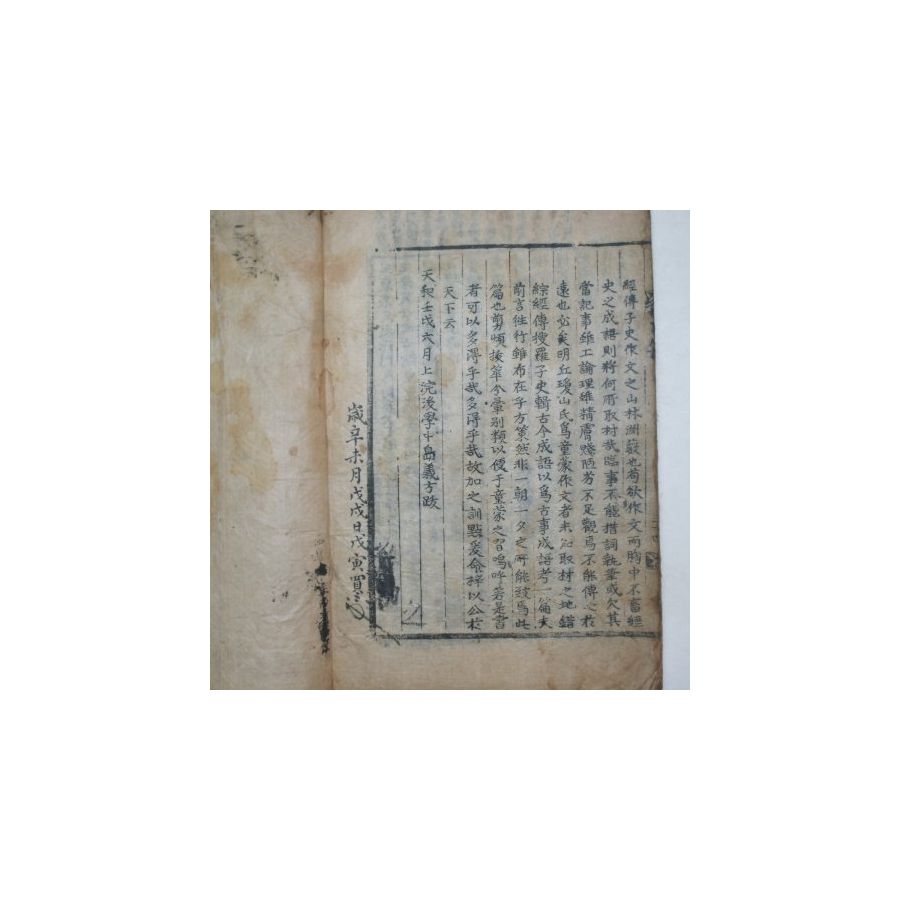 經傳子史作文之山林淵藪也苟欲作文而胸中不畜經
史之成語則將何所取材哉臨事不能措詞執筆或欠其
當記事雖工論理雖精膚淺陋劣不足觀焉不能傳之於
遠也必矣明丘瓊山氏爲童蒙作文者未知取材之地錯
綜經傳搜羅子史輯古今成語以爲古事成語考一篇夫
前言往行雖布在乎方策然非一朝一夕之所能該焉此
篇也剪煩撮華今彙別類以便于童蒙之習嗚呼若是書
者可以多得乎哉多得乎哉故加之訓點爰命梓以公於
天下云
天和壬戌六月上浣後學中島義方跋
歲辛未月戊戌日戊寅買